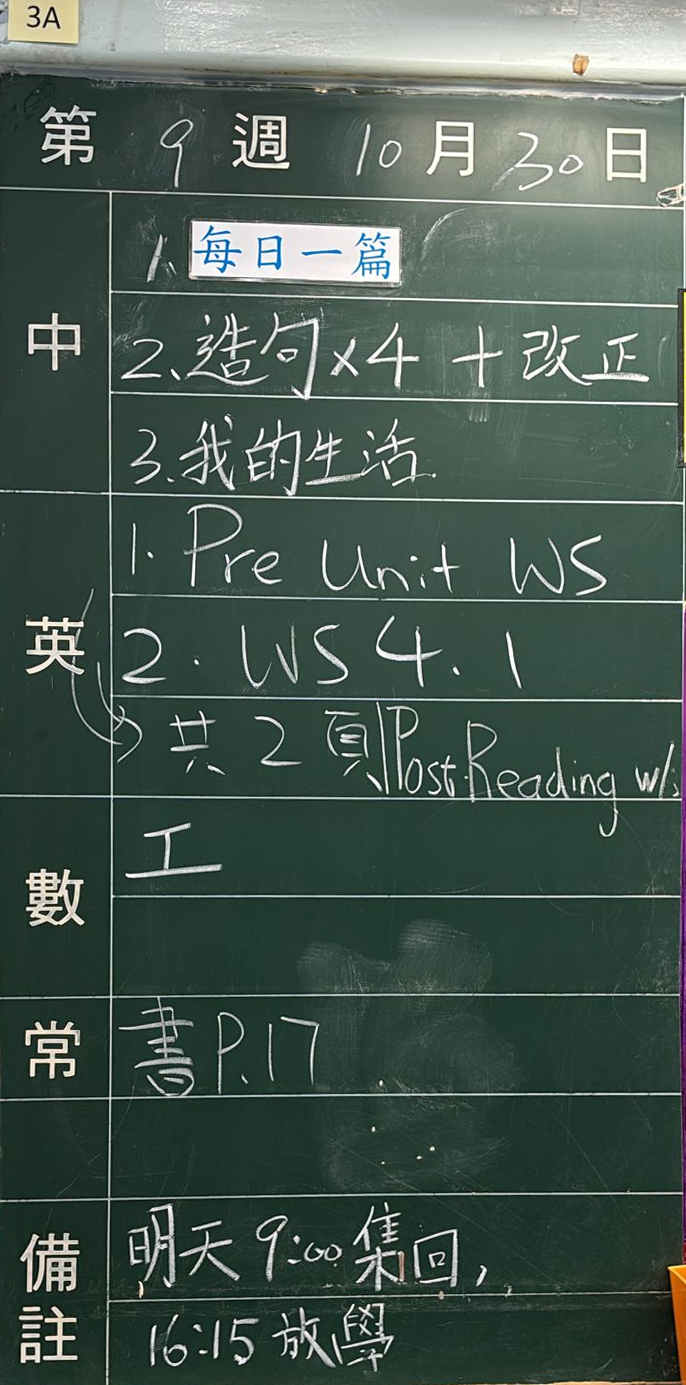 3A
第 9 週 10 月 30 日
中
1. 每日一篇
2、造句×4 + 改正
3.我的生活.
英
1. Pre Unit WS
2. WS 4.1
共 2 頁 Post-Reading w/s
數
工
常
書P.17
備註
明天 9:00 集回,
16:15 放學